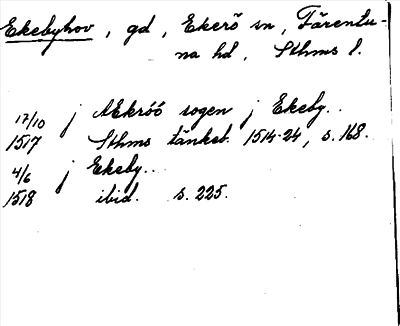 Ekebyhov, gd, Ekerö sn, Färentu-
na hd, Sthms l.
17/10 j Mekróó sogen j Ekeby..
1517 Sthms tänkeb. 1514-24, s. 168.
4/6 j Ekeby..
1518 ibid. s. 225.